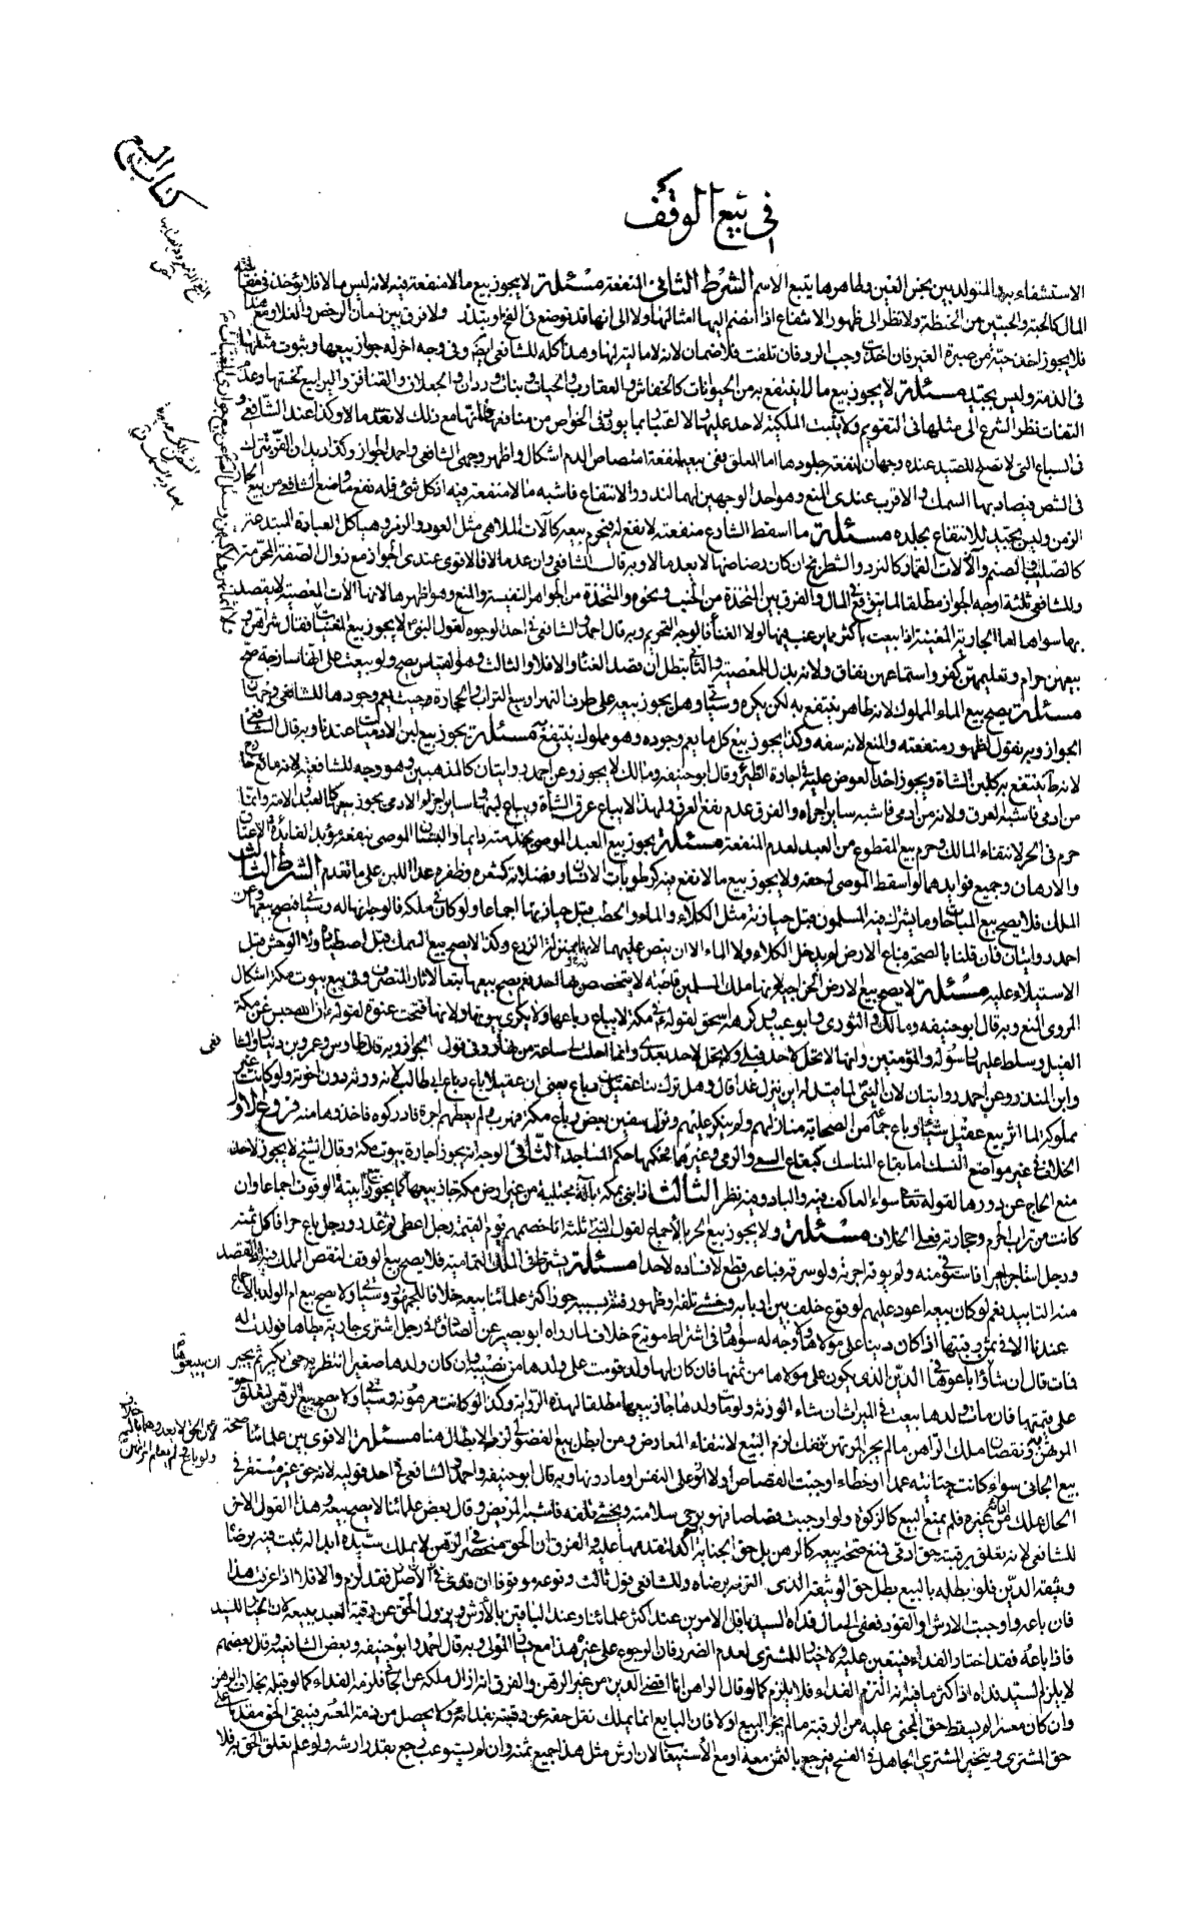 كتاب البيع
في بيع الوقف
الاستشفاء به والمتولد بين بخس العين وطاهرها يتبع الاسم الشرط الثاني المنفعة مسئلة لا يجوز بيع ما لا منفعة فيه لانه ليس مالا فلا يؤخذ في مقابلته
المال كالحبة والحبتين من الحنطة ولا نظر الى ظهور الانتفاع اذا انضم اليها امثالها ولا الى انها قد توضع في الفخ او يتلف ولا فرق بين زمان الرخص والغلاء ومع هذا
فلا يجوز اخذ حبة من صبرة الغير فان اخذت وجب الرد فان تلفت فلا ضمان لانه لا مالية لها وهذا كله للشافعي ايضا وفي وجه اخر له جواز بيعها وثبوت مثلها
في الذمة وليس بجيد مسئلة لا يجوز بيع ما لا ينتفع به من الحيوانات كالخفاش والعقارب والحيات وبنات وردان والجعلان والقنافذ واليرابيع لخستها وعدم
التفات نظر الشرع الى مثلها في التقويم ولا يثبت الملكية لاحد عليها ولا اعتبار بما يورد في الخواص من منافعها فانها مع ذلك لا تعد مالا وكذا عند الشافعي و
في السباع التي لا تصلح للصيد عنده وجهان لمنفعة جلودها اما العلق ففي بيعه لمنفعة امتصاص الدم اشكال واظهر وجهي الشافعي واحمد الجواز وكذا ديدان القز تترك
في الشص فيصاد بها السمك والاقرب عندي المنع وهو احد الوجهين لهما لندور الانتفاع فاشبه ما لا منفعة فيه اذ كل شئ فله نفع ما ومنع الشافعي من بيع الحمار
الزمن وليس بجيد للانتفاع بجلده مسئلة ما اسقط الشارع منفعته لا نفع له فيحرم بيعه كآلات الملاهي مثل العود والزمر وهياكل العبادة المبتدعة
كالصليب والصنم وآلات القمار كالنرد والشطرنج ان كان رضاضها لا يعد مالا وبه قال الشافعي وان عد مالا فالاقوى عندي الجواز مع زوال الصفة المحرمة
وللشافعي ثلثة اوجه الجواز مطلقا لما يتوقع في المال والفرق بين المتخذة من الخشب ونحوه والمتخذة من الجواهر النفيسة والمنع وهو اظهرها لانها آلات المعصية لا يقصد
بها سواها اما الجارية المغنية اذا بيعت باكثر مما يرغب فيها لولا الغناء فالوجه التحريم وبه قال احمد والشافعي في احد الوجوه لقول النبي لا يجوز بيع المغنيات فقال شراؤهن و
بيعهن حرام وتعليمهن كفر واستماعهن نفاق ولانه بذل للمعصية والثاني يبطل ان قصد الغناء والا فلا والثالث وهو القياس يصح ولو بيعت على انها ساذجة صح
مسئلة يصح بيع الماء المملوك لانه طاهر ينتفع به لكن يكره وسيأتي وهل يجوز بيعه على طرف النهر او بيع التراب والحجارة حيث يعم وجودها للشافعي وجهان
الجواز وبه نقول لظهور منفعته والمنع لانه سفه وكذا يجوز بيع كل ما يعم وجوده وهو مملوك ينتفع به مسئلة يجوز بيع لبن الادميات عندنا وبه قال الشافعي
لانه طاهر ينتفع به كلبن الشاة ويجوز اخذ العوض عليه في اجارة الظئر وقال ابو حنيفة ومالك لا يجوز وعن احمد روايتان كالمذهبين وهو وجه للشافعية لانه مائع خارج
من ادمي فاشبه العرق ولانه من ادمي فاشبه ساير اجزاءه والفرق عدم نفع العرق ولهذا لا يباع عرق الشاة ويباع لبنها وساير اجزاء الادمي يجوز بيعها كالعبد والامة وانما
حرم في الحر لانتفاء المالك وحرم بيع المقطوع من العبد لعدم المنفعة مسئلة يجوز بيع العبد الموصى بخدمته دائما والبستان الموصى بنفعه مؤبدا لفائدة الاعتاق
والارهان وجميع فوايدهما لو اسقط الموصى له حقه ولا يجوز بيع ما لا نفع فيه كرطوبات الانسان وفضلاته كشعره وظفره عدا اللبن على ما تقدم الشرط الثالث
الملك فلا يصح بيع المباحات وما يشترك فيه المسلمون قبل حيازته مثل الكلاء والماء والحطب قبل حيازتها اجماعا ولو كان في ملكه فالوجه انها له وسيأتي فيصح بيعها وعن
احمد روايتان فان قلنا بالصحة فباع الارض لم يدخل الكلاء ولا الماء الا ان ينص عليهما لانهما بمنزلة الزرع وكذا لا يصح بيع السمك قبل اصطياده ولا الوحش قبل
الاستيلاء عليه مسئلة لا يصح بيع الارض الخراجية لانها ملك المسلمين قاطبة لا يتخصص بها احد نعم يصح بيعها تبعا لاثار التصرف وفي بيع بيوت مكة اشكال
المروي المنع وبه قال ابو حنيفة ومالك والثوري وابو عبيد وكرهه اسحق لقوله في مكة لا يباع رباعها ولا يكرى بيوتها ولانها فتحت عنوة لقوله ان الله حبس عن مكة
الفيل وسلط عليها رسوله والمؤمنين وانها لا تحل لاحد قبلي ولا تحل لاحد بعدي وانما احلت لي ساعة من نهار وفي قول الجواز وبه قال طاوس وعمرو بن دينار والشافعي
وابن المنذر وعن احمد روايتان لان النبي لما قيل له اين تنزل غدا قال وهل ترك لنا عقيل من رباع يعني ان عقيلا باع رباع ابي طالب لانه ورثه دون اخوته ولو كانت غير
مملوكة لما اثر بيع عقيل شيئا وباع جماعة من الصحابة منازلهم ولم ينكر عليهم ونزل سفين بعض رباع مكة فهرب ولم يعطهم اجرة فادركوه فاخذوها منه فروع الاول
الخلاف في غير مواضع النسك اما بقاع المناسك كبقاع السعي والرمي وغيرهما فحكمها حكم المساجد الثاني الوجه انه يجوز اجارة بيوت مكة وقال الشيخ لا يجوز لاحد
منع الحاج عن دورها لقوله تعالى سواء العاكف فيه والباد وفيه نظر الثالث اذا بنى بمكة بآلة مجتلبة من غير ارض مكة جاز بيعها كما يجوز بيع ابنية الوقوف اجماعا وان
كانت من تراب الحرم وحجارته فعلى الخلاف مسئلة ولا يجوز بيع الحر بالاجماع لقول النبي ثلثة انا خصمهم يوم القيمة رجل اعطى بي ثم غدر ورجل باع حرا فاكل ثمنه
ورجل استاجر اجيرا فاستوفى منه ولم يوفه اجره ولو سرقه فباعه قطع لافساده لا حدا مسئلة يشترط في الملك التمامية فلا يصح بيع الوقف لنقص الملك فيه اذ القصد
منه التابيد نعم لو كان بيعه اعود عليهم لوقوع خلف بين اربابه وخشي تلفه او ظهور فتنة بسببه جوز اكثر علمائنا بيعه خلافا للجمهور وسيأتي ولا يصح بيع ام الولد بالاجماع
عندنا الا في ثمن رقبتها اذا كان دينا على مولاها ولا وجه له سواها وفي اشتراط موته خلاف لما رواه ابو بصير عن الصادق في رجل اشترى جارية يطاها فولدت له
فمات قال ان شاؤا باعوها في الدين الذي يكون على مولاها من ثمنها فان كان لها ولد قومت على ولدها من نصيبه وان كان ولدها صغيرا انتظر به حتى يكبر ثم يجبر
على قيمتها فان مات ولدها بيعت في الميراث ان شاء الورثة ولو مات ولدها جاز بيعها مطلقا لهذه الرواية وكذا لو كانت مرهونة وسيأتي ولا يصح بيع الرهن لتعلق حق
المرتهن به ونقصان ملك الراهن ما لم يجز المرتهن فقد لزم البيع لانتفاء المعارض ومن ابطل بيع الفضولي لزمه الابطال هنا مسئلة الاقوى بين علمائنا صحة
بيع الجاني سواء كانت جنايته عمدا او خطاء اوجبت القصاص او لا اتى على النفس او ما دونها وبه قال ابو حنيفة واحمد والشافعي في احد قوليه لانه حق غير مستقر في
الحال يملك اداؤه من غيره فلم يمنع البيع كالزكوة ولو اوجبت قصاصا فهو يرجى سلامته ويخشى تلفه فاشبه المريض وقال بعض علمائنا لا يصح بيعه وهذا القول الاخر
للشافعي لانه تعلق برقبته حق ادمي فمنع صحة بيعه كالرهن بل حق الجناية آكد لتقدمها عليه والفرق ان الحق منحصر في الرهن لا يملك سيده ابداله ثبت فيه برضائه
وثيقة الدين فلو ابطله بالبيع بطل حق الوثيقة الذي التزمه برضاه وللشافعي قول ثالث وقوعه موقوفا ان فدي لزم والا فلا اذا عرفت هذا
فان باعه واوجبت الارش او القود فعفي الى مال فداه السيد باقل الامرين عند اكثر علمائنا وعند الباقين بالارش ويزول الحق عن رقبة العبد ببيعه لان الخيار للسيد
فاذا باعه فقد اختار الفداء فيتعين عليه ولا خيار للمشتري لعدم الضرر فان الرجوع على غيره هذا مع يسار المولى وبه قال احمد وابو حنيفة وبعض الشافعية وقال بعضهم
لا يلزم السيد فداه اذ اكثر ما فيه انه التزم الفداء فلا يلزم كما لو قال الراهن انا اقضي الدين من غير الرهن والفرق انه ازال ملكه عن الجاني فلزمه الفداء كما لو قتله بخلاف الرهن
وان كان معسرا لم يسقط حق المجني عليه من الرقبة ما لم يجز البيع اولا فان البايع انما يملك نقل حقه عن رقبته بفدائه ولا يحصل من ذمة المعسر فيبقى الحق مقدما على
حق المشتري ويتخير المشتري الجاهل في الفسخ فيرجع بالثمن معه او مع الاستيعاب لان ارش مثل هذا جميع ثمنه وان لم يستوعب يرجع بقدر ارشه ولو علم تعلق الحق به فلا